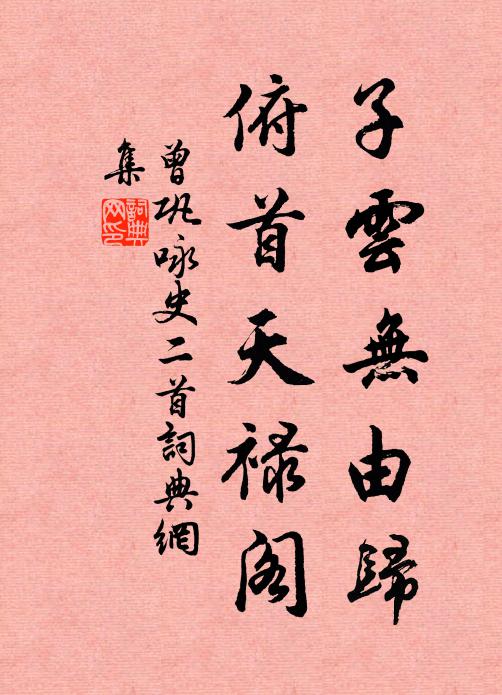 子雲無由歸
俯首天禄阁
曾巩咏史二首詞典網
集
詞典
网印